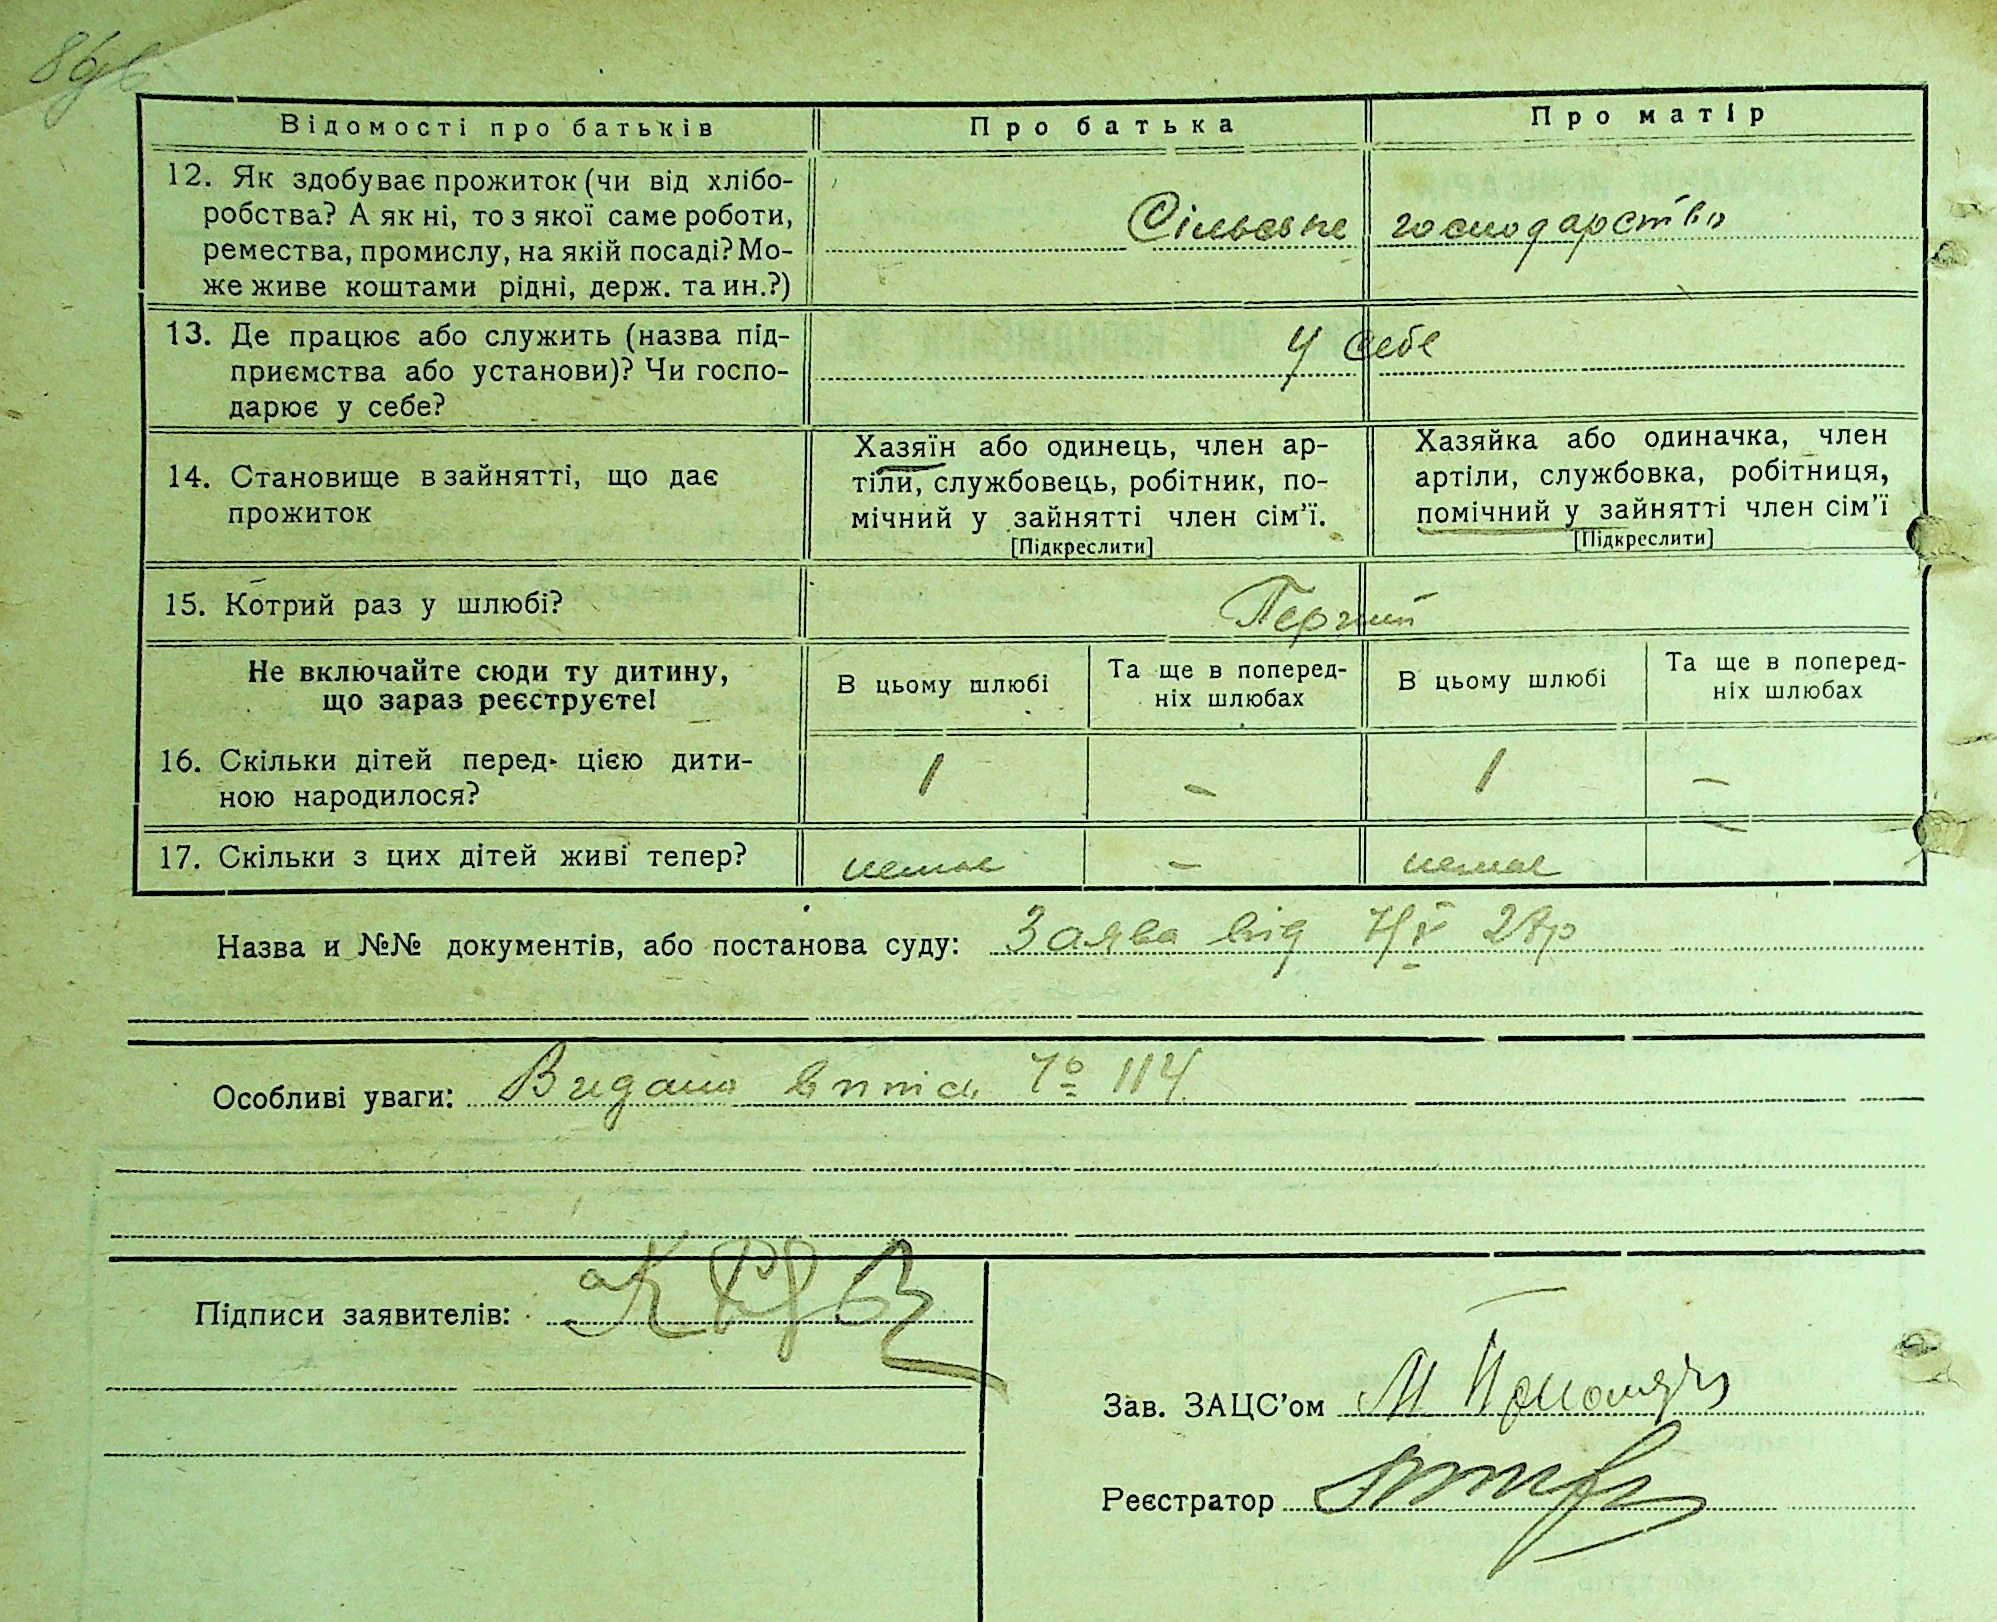 Відомості про батьків
Про батька
Про матір
12. Як здобуває прожиток (чи від хлібо-
робства? А як ні, то з якої саме роботи,
ремества, промислу, на якій посаді? Мо-
же живе коштами рідні, держ. та ин.?)
Сільське господарство
13. Де працює або служить (назва під-
приємства або установи)? Чи госпо-
дарює у себе?
У себе
14. Становище в зайнятті, що дає
прожиток
Хазяїн або одинець, член ар-
тіли, службовець, робітник, по-
мічний у зайнятті член сім'ї.
[Підкреслити]
Хазяйка або одиначка, член
артіли, службовка, робітниця,
помічний у зайнятті член сім'ї
[Підкреслити]
15. Котрий раз у шлюбі?
Перший
Не включайте сюди ту дитину,
що зараз реєструєте!
В цьому шлюбі
Та ще в поперед-
ніх шлюбах
В цьому шлюбі
Та ще в поперед-
ніх шлюбах
16. Скільки дітей перед цією дити-
ною народилося?
1 - 1 -
17. Скільки з цих дітей живі тепер?
немає - немає -
Назва и №№ документів, або постанова суду: Заява від
Особливі уваги: Видано 114
Підписи заявителів:
Зав. ЗАЦС'ом М
Реєстратор